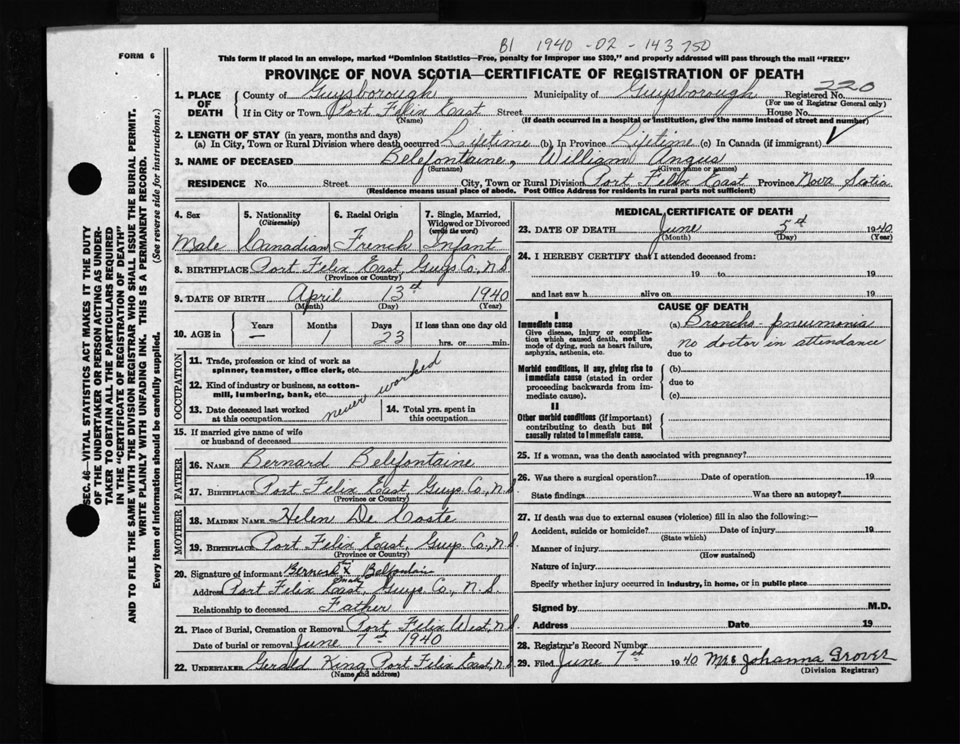 B1 1940 - 02 - 143750
FORM 6
This form if placed in an envelope, marked "Dominion Statistics—Free, penalty for improper use $300," and properly addressed will pass through the mail "FREE"
PROVINCE OF NOVA SCOTIA—CERTIFICATE OF REGISTRATION OF DEATH
220
1. PLACE OF DEATH
County of Guysborough Municipality of Guysborough Registered No.
(For use of Registrar General only)
If in City or Town Port Felix East Street House No.
(Name) (If death occurred in a hospital or institution, give the name instead of street and number)
2. LENGTH OF STAY (in years, months and days)
(a) In City, Town or Rural Division where death occurred Lifetime (b) In Province Lifetime (c) In Canada (if immigrant)
3. NAME OF DECEASED Belefontaine, William Angus
(Surname) (Given name or names)
RESIDENCE No. Street City, Town or Rural Division Port Felix East Province Nova Scotia
(Residence means usual place of abode. Post Office Address for residents in rural parts not sufficient)
4. Sex
Male
5. Nationality
(Citizenship)
Canadian
6. Racial Origin
French
7. Single, Married, Widowed or Divorced
(write the word)
Infant
8. BIRTHPLACE Port Felix East, Guys. Co., N.S.
(Province or Country)
9. DATE OF BIRTH April 13th 1940
(Month) (Day) (Year)
10. AGE in
Years Months Days If less than one day old
— 1 23 hrs. or min.
OCCUPATION
11. Trade, profession or kind of work as
spinner, teamster, office clerk, etc.
12. Kind of industry or business, as cotton-
mill, lumbering, bank, etc.
never worked
13. Date deceased last worked
at this occupation
14. Total yrs. spent in
this occupation
15. If married give name of wife
or husband of deceased
FATHER
16. NAME Bernard Belefontaine
17. BIRTHPLACE Port Felix East, Guys. Co., N.S.
(Province or Country)
MOTHER
18. MAIDEN NAME Helen De Coste
19. BIRTHPLACE Port Felix East, Guys. Co., N.S.
(Province or Country)
20. Signature of informant Bernard X Belfontain
Address Port Felix East, Guys. Co., N.S.
Relationship to deceased Father
21. Place of Burial, Cremation or Removal Port Felix West, N.S.
Date of burial or removal June 7th 1940
22. UNDERTAKER Gerald King, Port Felix East, N.S.
(Name and address)
MEDICAL CERTIFICATE OF DEATH
23. DATE OF DEATH June 5th 1940
(Month) (Day) (Year)
24. I HEREBY CERTIFY that I attended deceased from:
19 to 19
and last saw h alive on 19
CAUSE OF DEATH
I
Immediate cause
Give disease, injury or complica-
tion which caused death, not the
mode of dying, such as heart failure,
asphyxia, asthenia, etc.
(a) Broncho-pneumonia
no doctor in attendance
due to
Morbid conditions, if any, giving rise to
immediate cause (stated in order
proceeding backwards from im-
mediate cause).
(b)
due to
(c)
II
Other morbid conditions (if important)
contributing to death but not
causally related to immediate cause.
25. If a woman, was the death associated with pregnancy?
26. Was there a surgical operation? Date of operation 19
State findings Was there an autopsy?
27. If death was due to external causes (violence) fill in also the following:—
Accident, suicide or homicide? Date of injury 19
(State which)
Manner of injury
(How sustained)
Nature of injury
Specify whether injury occurred in industry, in home, or in public place
Signed by M.D.
Address Date 19
28. Registrar's Record Number
29. Filed June 7th 1940 Mrs Johanna Grover
(Division Registrar)
SEC. 46—VITAL STATISTICS ACT MAKES IT THE DUTY
OF THE UNDERTAKER OR PERSON ACTING AS UNDER-
TAKER TO OBTAIN ALL THE PARTICULARS REQUIRED
IN THE "CERTIFICATE OF REGISTRATION OF DEATH"
AND TO FILE THE SAME WITH THE DIVISION REGISTRAR WHO SHALL ISSUE THE BURIAL PERMIT.
WRITE PLAINLY WITH UNFADING INK. THIS IS A PERMANENT RECORD.
Every item of information should be carefully supplied. (See reverse side for instructions.)